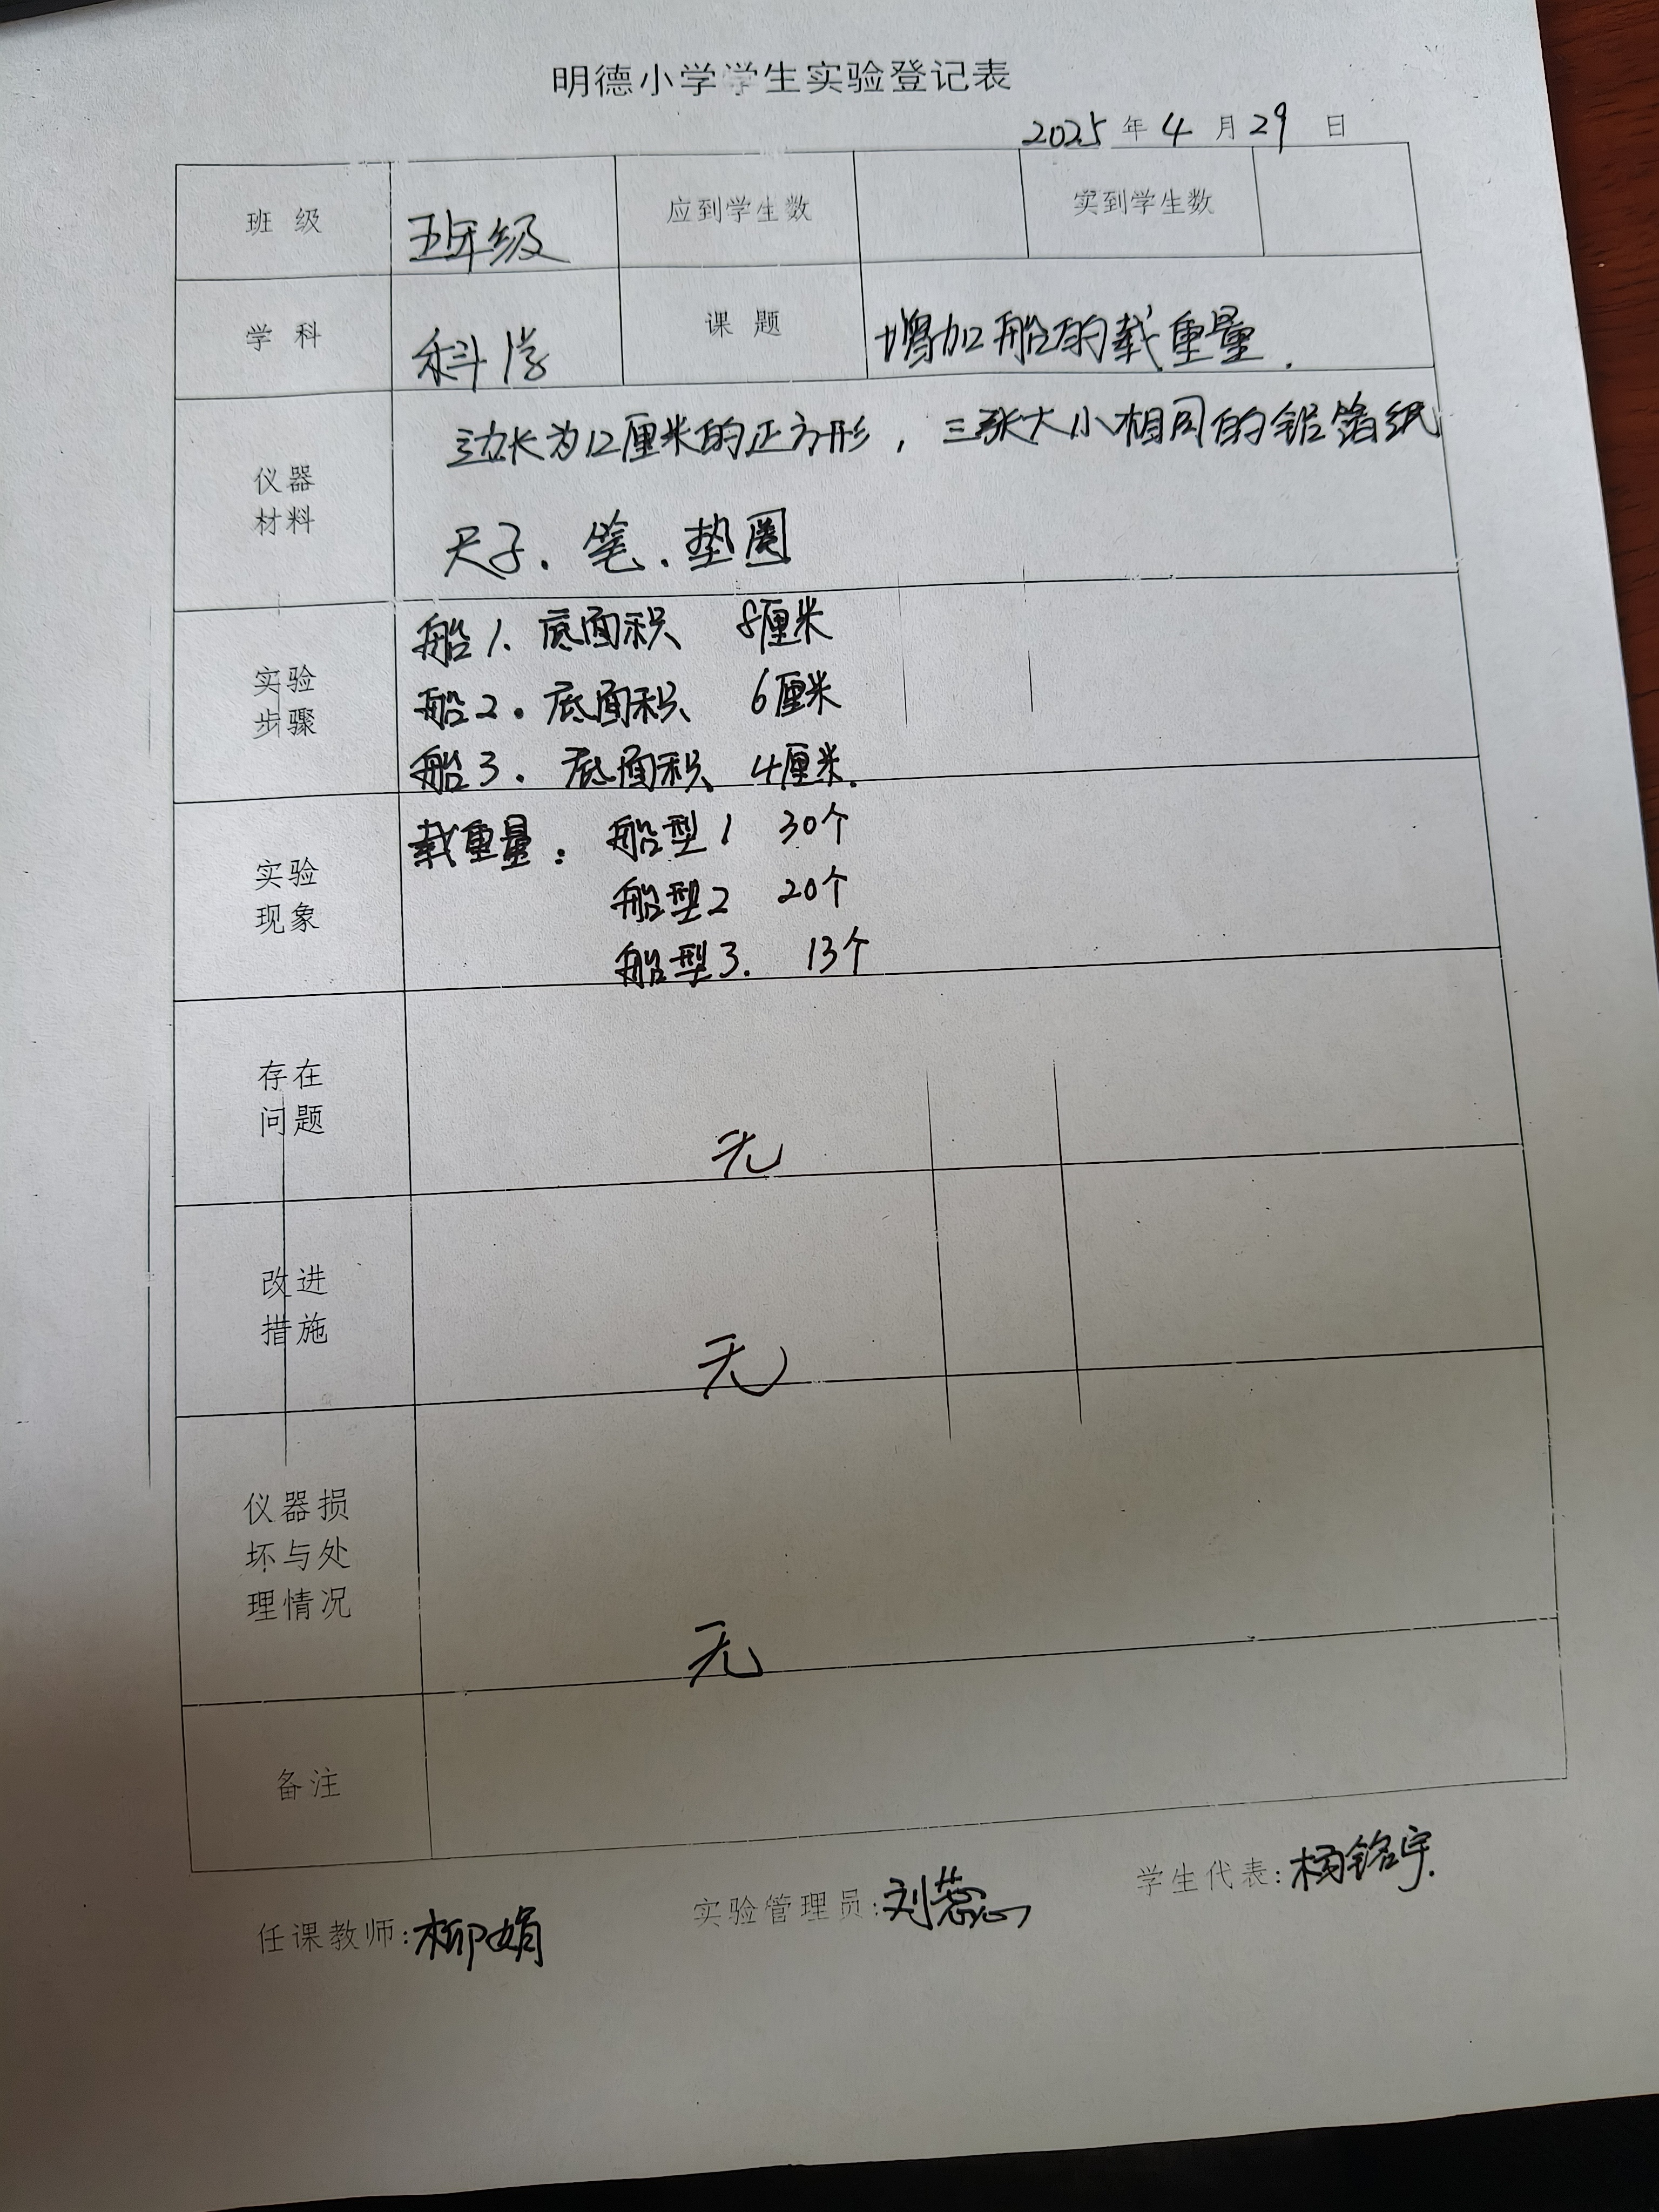 明德小学学生实验登记表
2025 年 4 月 29 日
班 级 五年级 应到学生数 实到学生数
学 科 科学 课 题 增加船的载重量.
仪器
材料
边长为12厘米的正方形，三张大小相同的铝箔纸
尺子.笔.垫圈
实验
步骤
船1.底面积 8厘米
船2.底面积 6厘米
船3.底面积 4厘米.
实验
现象
载重量: 船型1 30个
船型2 20个
船型3. 13个
存在
问题
无
改进
措施
无
仪器损
坏与处
理情况
无
备注
任课教师:柳娟 实验管理员:刘蕊 学生代表:杨铭宇.